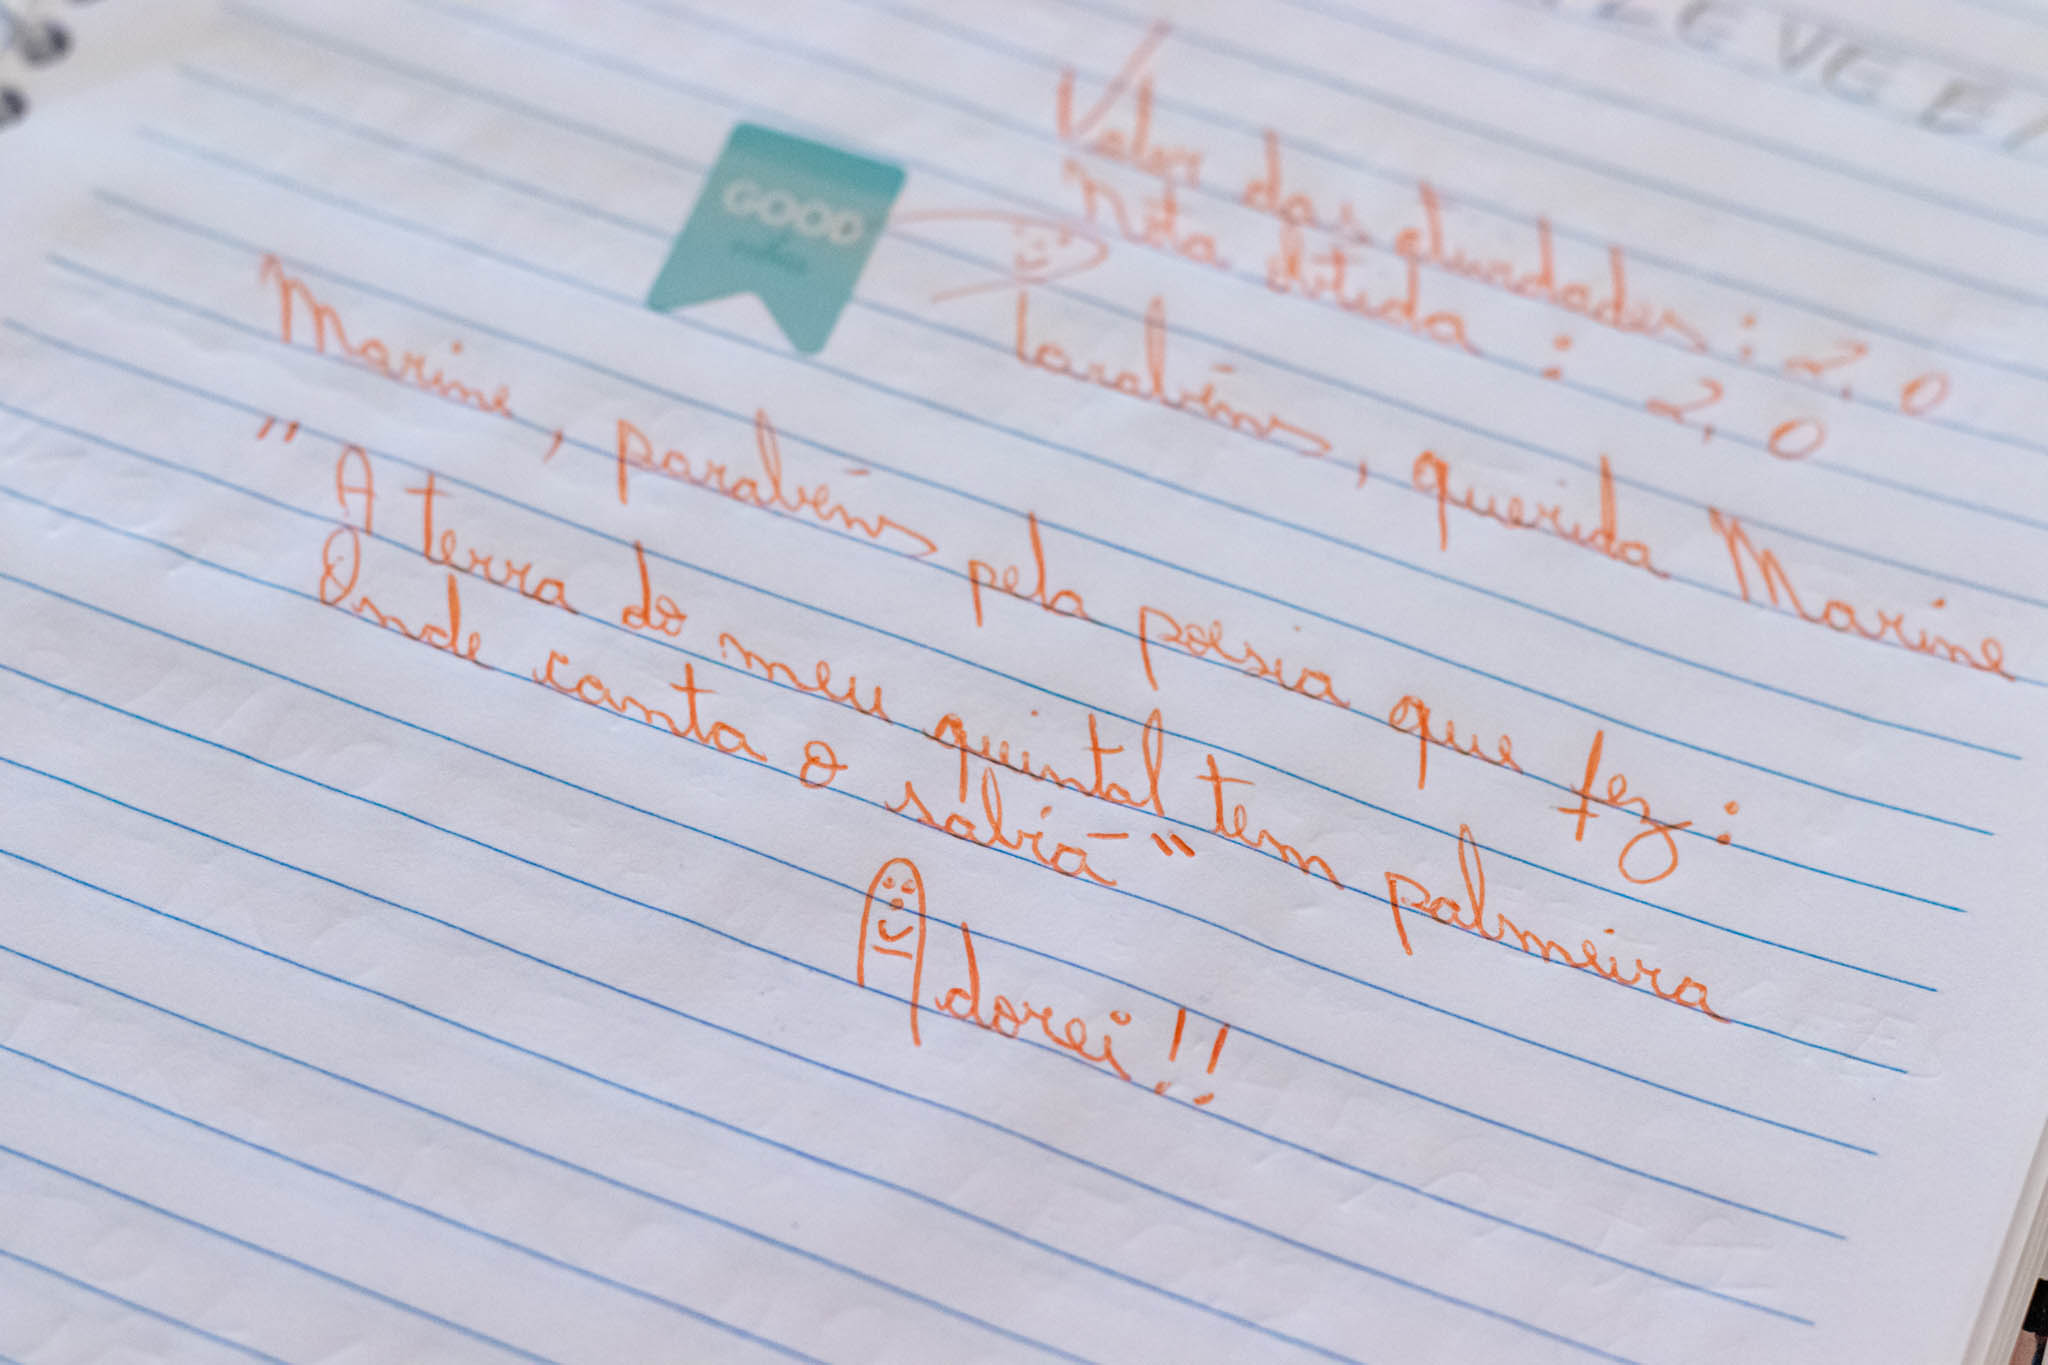 Valor das atividades: 2,0
Nota obtida: 2,0
GOOD
vibes
Parabéns, querida Marine
Marine, parabéns pela poesia que fez:
"A terra do meu quintal tem palmeira
Onde canta o sabiá"
Adorei!!